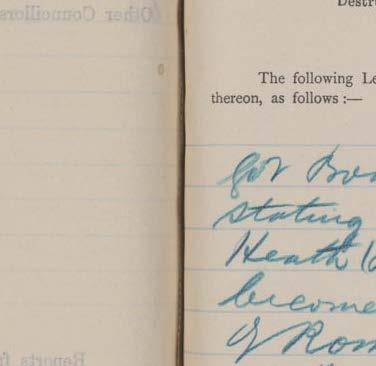 Other Councillors
Destru
The following Le
thereon, as follows :—
stating
Heath
become
of Rom
Reports fr